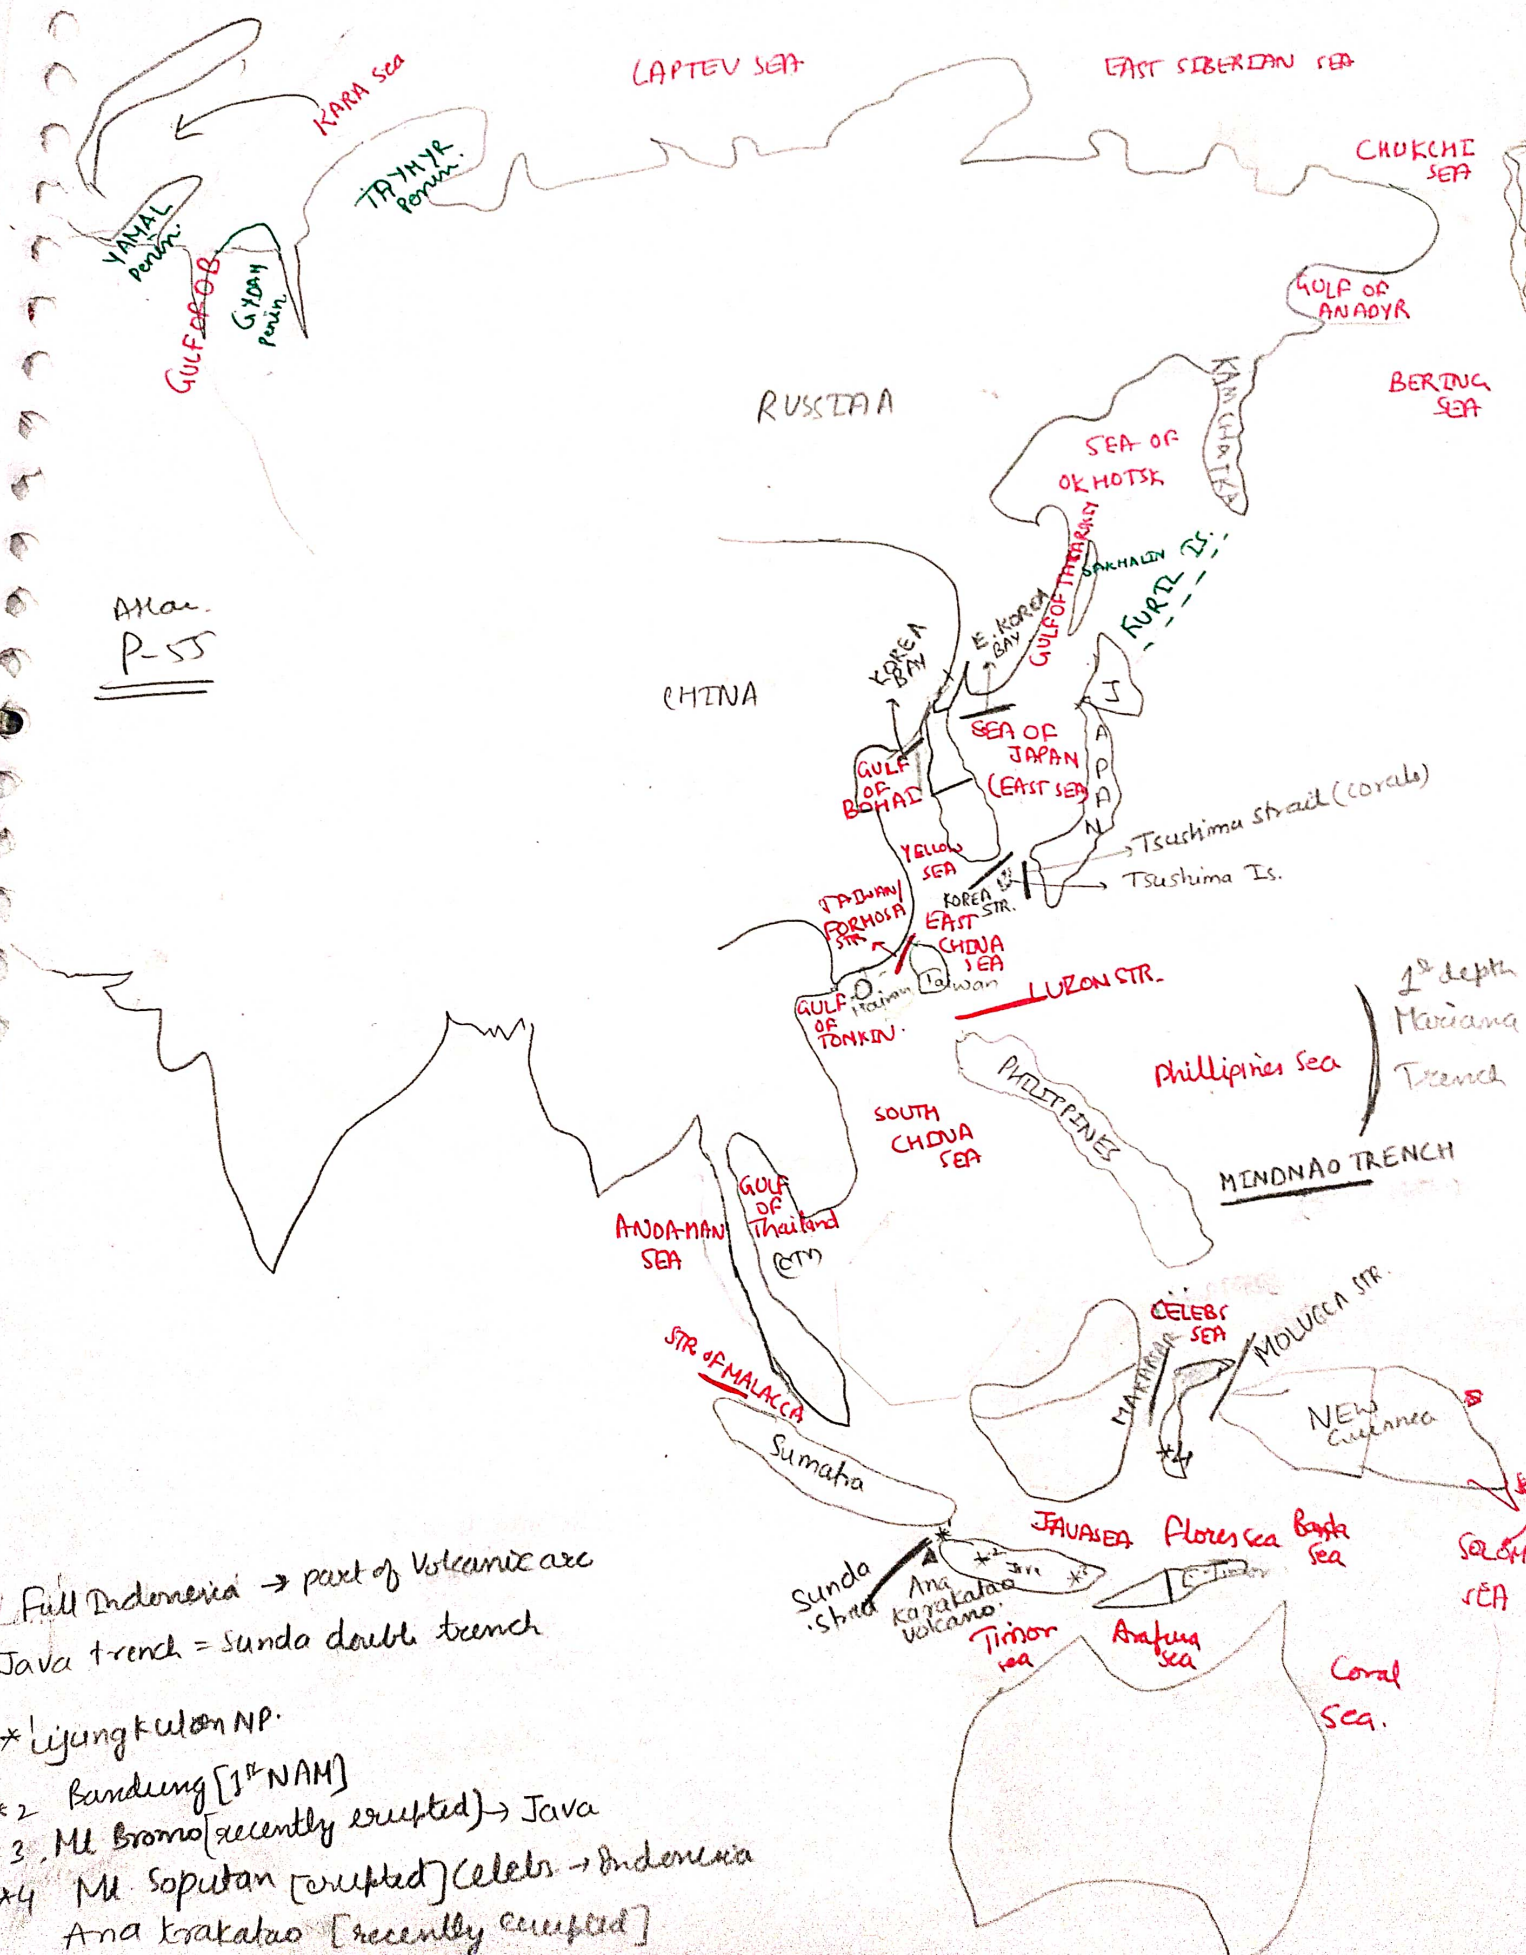 KARA Sea
LAPTEV SEA
EAST SIBERIAN SEA
CHUKCHI
SEA
TAYMYR
Penin.
YAMAL
Penin.
GULF OF OB
GYDAN
Penin.
GULF OF
ANADYR
BERING
SEA
RUSSIAA
KAMCHATKA
SEA OF
OKHOTSK
GULF OF TATARASY
SAKHALIN
KURIL IS.
Atlas.
P-55
CHINA
KOREA
BAY
E. KOREA
BAY
JAPAN
SEA OF
JAPAN
(EAST SEA)
GULF
OF
BOHAI
YELLOW
SEA
Tsushima strait (corals)
Tsushima Is.
KOREA
STR.
TAIWAN/
FORMOSA
STR
EAST
CHINA
SEA
Hainan
Taiwan
LUZON STR.
GULF
OF
TONKIN.
1st depth
Mariana
Trench
Phillipines Sea
PHILIPPINES
SOUTH
CHINA
SEA
MINDNAO TRENCH
GULF
OF
Thailand
ANDAMAN
SEA
CELEBS
SEA
MOLUCCA STR.
MAKASSAR
STR OF MALACCA
NEW
Guinnea
Sumatra
*4
JAVA SEA
Flores sea
Banda
sea
SOLOM
SEA
*1
*2
Java
*3
Timor
Sunda
strait
Ana
Karakatao
volcano.
Timor
sea
Arafura
sea
Coral
Sea.
Full Indonesia → part of Volcanic arc
Java trench = Sunda double trench
*1 Ujung Kulon NP.
*2 Bandung [1st NAM]
3. Mt Bromo [recently erupted] → Java
*4 Mt. Soputan [erupted] Celebs → Indonesia
Ana Krakatao [recently erupted]